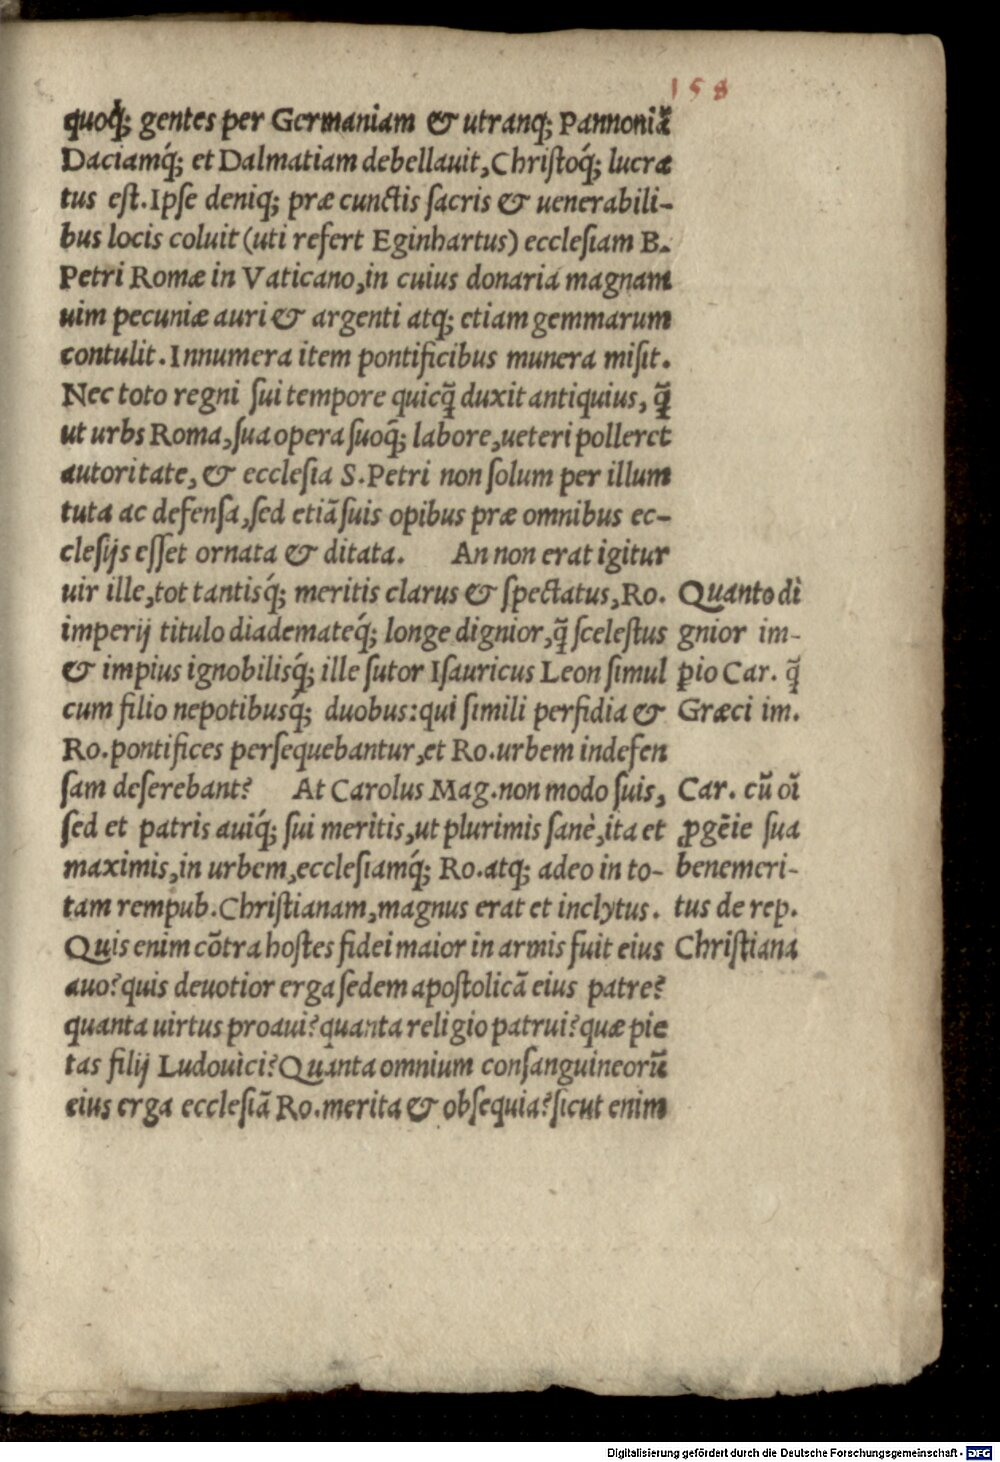 158
quoq́; gentes per Germaniam & utranq; Pannoniã
Daciamq́; et Dalmatiam debellauit, Christoq́; lucra
tus est. Ipse deniq; præ cunctis sacris & uenerabili-
bus locis coluit (uti refert Eginhartus) ecclesiam B.
Petri Romæ in Vaticano, in cuius donaria magnam
uim pecuniæ auri & argenti atq; etiam gemmarum
contulit. Innumera item pontificibus munera misit.
Nec toto regni sui tempore quicq̃ duxit antiquius, q̃
ut urbs Roma, sua opera suoq́; labore, ueteri polleret
autoritate, & ecclesia S. Petri non solum per illum
tuta ac defensa, sed etiã suis opibus præ omnibus ec-
clesijs esset ornata & ditata. An non erat igitur
uir ille, tot tantisq́; meritis clarus & spectatus, Ro.
imperij titulo diademateq́; longe dignior, q̃ scelestus
& impius ignobilisq́; ille sutor Isauricus Leon simul
cum filio nepotibusq́; duobus: qui simili perfidia &
Ro. pontifices persequebantur, et Ro. urbem indefen
sam deserebant? At Carolus Mag. non modo suis,
sed et patris auiq́; sui meritis, ut plurimis sanè, ita et
maximis, in urbem, ecclesiamq́; Ro. atq; adeo in to-
tam rempub. Christianam, magnus erat et inclytus.
Quis enim cõtra hostes fidei maior in armis fuit eius
auo? quis deuotior erga sedem apostolicã eius patre?
quanta uirtus proaui? quanta religio patrui? quæ pie
tas filij Ludouici? Quanta omnium consanguineorũ
eius erga ecclesiã Ro. merita & obsequia? sicut enim
Quanto di
gnior im-
pio Car. q̃
Græci im.
Car. cũ oĩ
ꝓgẽie sua
benemeri-
tus de rep.
Christiana
Digitalisierung gefördert durch die Deutsche Forschungsgemeinschaft - DFG